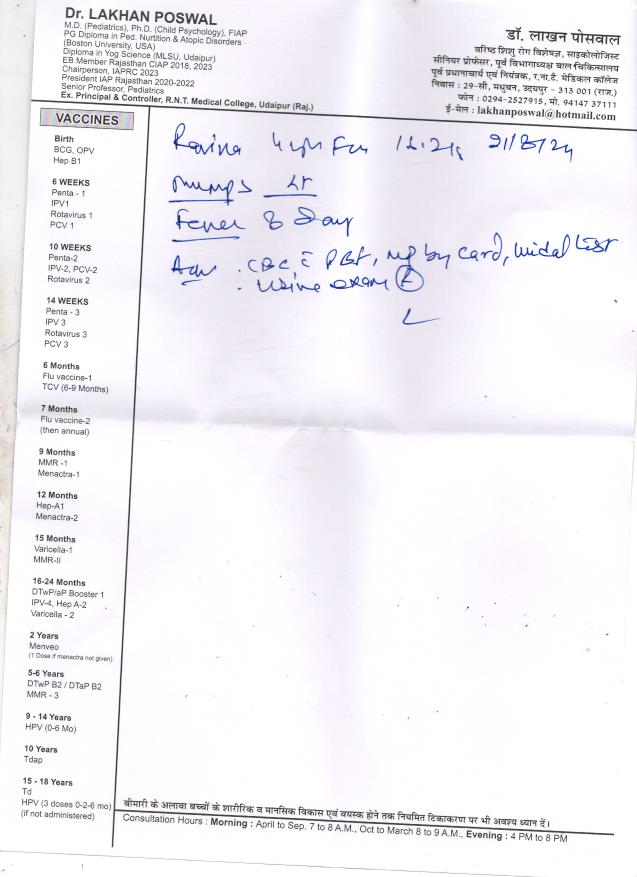 Dr. LAKHAN POSWAL
M.D. (Pediatrics), Ph.D. (Child Psychology), FIAP
PG Diploma in Ped. Nurtition & Atopic Disorders
(Boston University, USA)
Diploma in Yog Science (MLSU, Udaipur)
EB Member Rajasthan CIAP 2018, 2023
Chairperson, IAPRC 2023
President IAP Rajasthan 2020-2022
Senior Professor, Pediatrics
Ex. Principal & Controller, R.N.T. Medical College, Udaipur (Raj.)
डॉ. लाखन पोसवाल
वरिष्ठ शिशु रोग विशेषज्ञ, साइकोलोजिस्ट
सीनियर प्रोफेसर, पूर्व विभागाध्यक्ष बाल चिकित्सालय
पूर्व प्रधानाचार्य एवं नियंत्रक, र.ना.टै. मेडिकल कॉलेज
निवास : 29-सी, मधुबन, उदयपुर - 313 001 (राज.)
फोन : 0294-2527915, मो. 94147 37111
ई-मेल : lakhanposwal@hotmail.com
VACCINES
Birth
BCG, OPV
Hep B1
6 WEEKS
Penta - 1
IPV1
Rotavirus 1
PCV 1
10 WEEKS
Penta-2
IPV-2, PCV-2
Rotavirus 2
14 WEEKS
Penta - 3
IPV 3
Rotavirus 3
PCV 3
6 Months
Flu vaccine-1
TCV (6-9 Months)
7 Months
Flu vaccine-2
(then annual)
9 Months
MMR -1
Menactra-1
12 Months
Hep-A1
Menactra-2
15 Months
Varicella-1
MMR-II
16-24 Months
DTwP/aP Booster 1
IPV-4, Hep A-2
Varicella - 2
2 Years
Menveo
(1 Dose if menactra not given)
5-6 Years
DTwP B2 / DTaP B2
MMR - 3
9 - 14 Years
HPV (0-6 Mo)
10 Years
Tdap
15 - 18 Years
Td
HPV (3 doses 0-2-6 mo)
(if not administered)
Ravina 21/8/24
Mumps Lt
Fever 8 Day
Adv . CBC c̄ PBF, mp by card, widal test
. Urine exam
बीमारी के अलावा बच्चों के शारीरिक व मानसिक विकास एवं वयस्क होने तक नियमित टिकाकरण पर भी अवश्य ध्यान दें।
Consultation Hours : Morning : April to Sep. 7 to 8 A.M., Oct to March 8 to 9 A.M., Evening : 4 PM to 8 PM